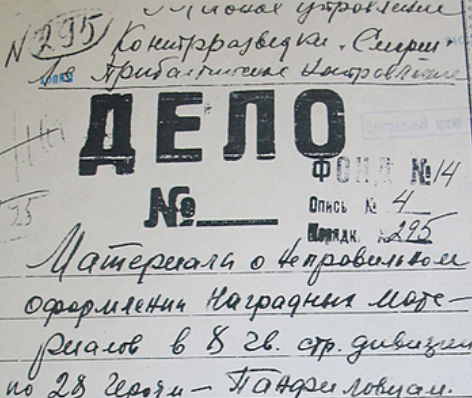 управление
N 295 Контрразведки "Смерш"
По Прибалтийскому направлению
ДЕЛО
ФОНД № 14
№
Опись № 4
Порядк. № 295
Материалы о неправильном
оформлении Наградных мате-
риалов в 8 гв. стр. дивизии
по 28 героям - Панфиловцам.